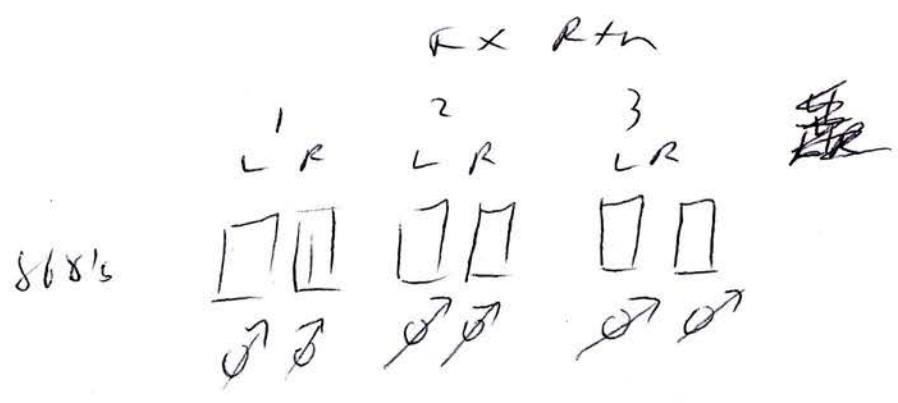 FX Rtn
1 2 3
L R L R L R
868's